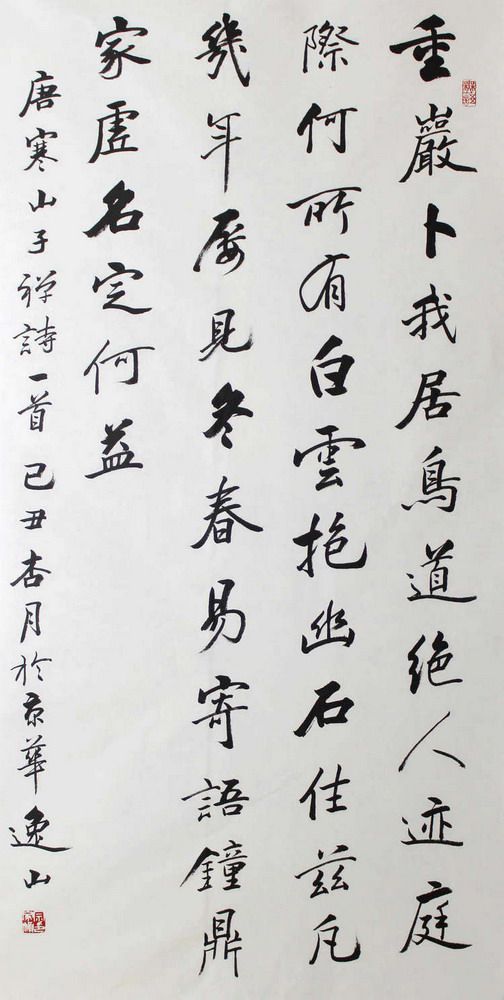 重巖卜我居鳥道絶人迹庭
際何所有白雲抱幽石住茲凡
幾年屢見冬春易寄語鐘鼎
家虛名定何益
唐寒山子禅詩一首 己丑杏月於京華逸山